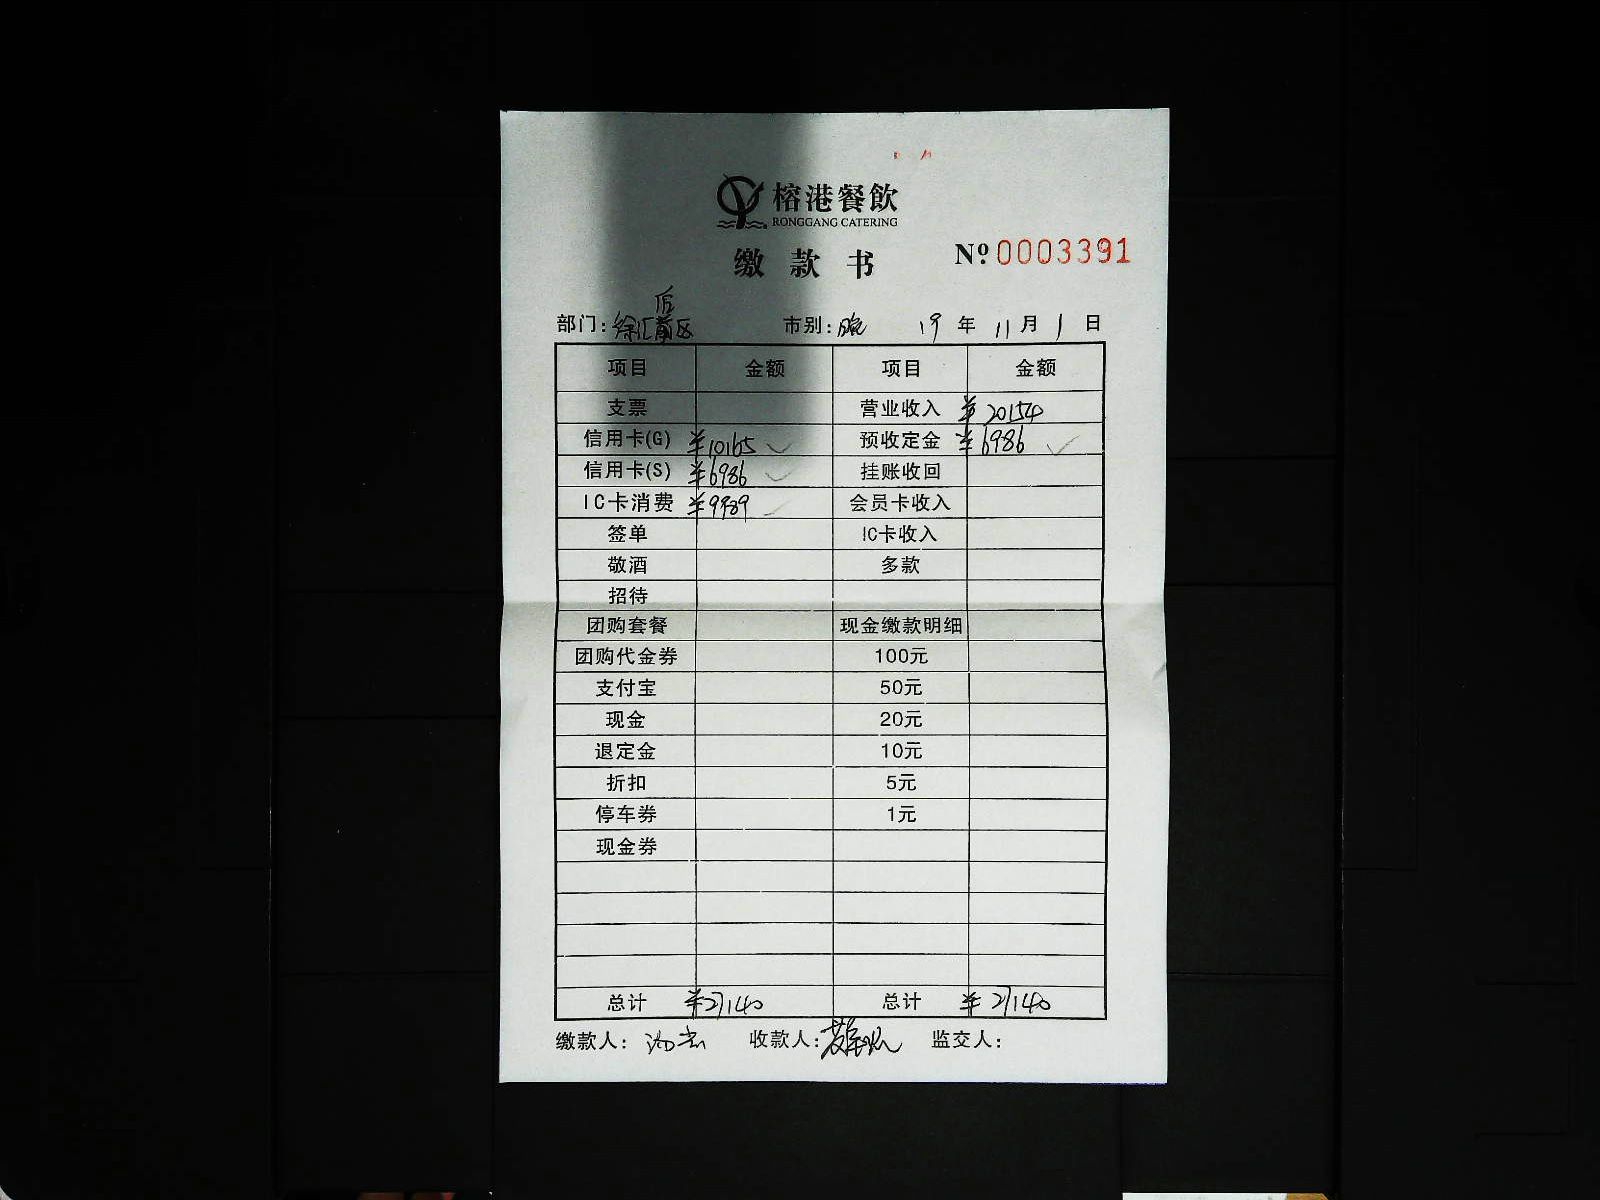 榕港餐飲
RONGGANG CATERING
缴款书 Nº 0003391
部门: 徐汇后区 市别: 晚 19年11月1日
项目 金额 项目 金额
支票 营业收入 ¥20154
信用卡(G) ¥10165 预收定金 ¥6986
信用卡(S) ¥6986 挂账收回
IC卡消费 ¥9989 会员卡收入
签单 IC卡收入
敬酒 多款
招待
团购套餐 现金缴款明细
团购代金券 100元
支付宝 50元
现金 20元
退定金 10元
折扣 5元
停车券 1元
现金券
总计 ¥27140 总计 ¥27140
缴款人: 收款人: 监交人: